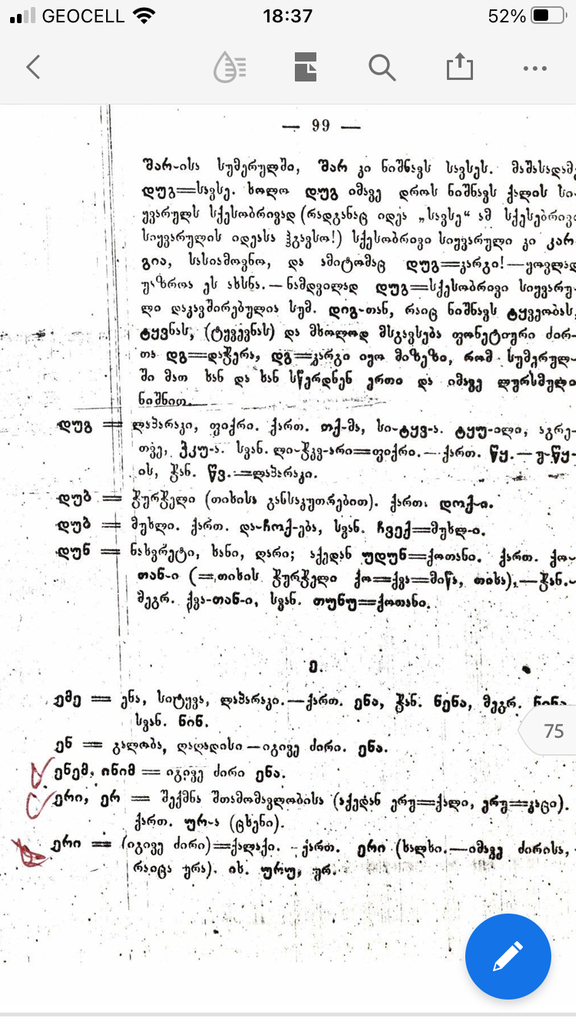 GEOCELL 18:37 52%
— 99 —
შარ-ისა სუმერულში, შარ კი ნიშნავს სავსეს. მაშასადამე
დუგ=სავსე. ხოლო დუგ იმავე დროს ნიშნავს ქალის სი-
ყვარულს სქესობრივად (რადგანაც იდეა „სავსე“ ამ სქესებრივი
სიყვარულის იდეასა ჰგავსო!) სქესობრივი სიყვარული კი კარ-
გია, სასიამოვნო, და ამიტომაც დუგ=კარგი!—ყოვლად
უაზროა ეს ახსნა.—ნამდვილად დუგ=სქესობრივი სიყვარუ-
ლი დაკავშირებულია სუმ. დიგ-თან, რაიც ნიშნავს ტყვეობას,
ტყვნას, (ტყვევნას) და მხოლოდ მსგავსება ფონეტიური ძირ-
თა დგ=დაჭერა, დგ=კარგი იყო მიზეზი, რომ სუმერულ-
ში მათ ხან და ხან სწერდნენ ერთი და იმავე ლურსმული
ნიშნით.
დუგ = ლაპარაკი, ფიქრი. ქართ. თქ-მა, სი-ტყვ-ა. ტყუ-ილი, აგრე-
თვე, ჰკუ-ა. სვან. ლი-ჭკვ-არი=ფიქრი.—ქართ. წყ.—უ-წყ-
ის, ჭან. წვ.=ლაპარაკი.
დუბ = ჭურჭელი (თიხისა განსაკუთრებით). ქართ. დოქ-ი.
დუბ = მუხლი. ქართ. და-ჩოქ-ება, სვან. ჩვექ=მუხლ-ი.
დუნ = ნახვრეტი, ხანი, ღარი; აქედან უდუნ=ქოთანი. ქართ. ქო-
თან-ი (=თიხის ჭურჭელი ქო=ქვა=მიწა, თიხა).—ჭან.-
მეგრ. ქვა-თან-ი, სვან. თუნუ=ქოთანი.
ე.
ემე = ენა, სიტყვა, ლაპარაკი.—ქართ. ენა, ჭან. ნენა, მეგრ. ნინა
სვან. ნინ.
ენ = გალობა, ღაღადისი—იგივე ძირი. ენა.
ენემ, ინიმ = იგივე ძირი ენა.
ერი, ერ = შექმნა შთამომავლობისა (აქედან ერუ=ქალი, ერუ=კაცი).
ქართ. ურ-ა (ცხენი).
ერი = (იგივე ძირი)=ქალაქი. - ქართ. ერი (ხალხი.—იმავე ძირისა,
რაიცა ურა). იხ. ურუ, ურ.
75